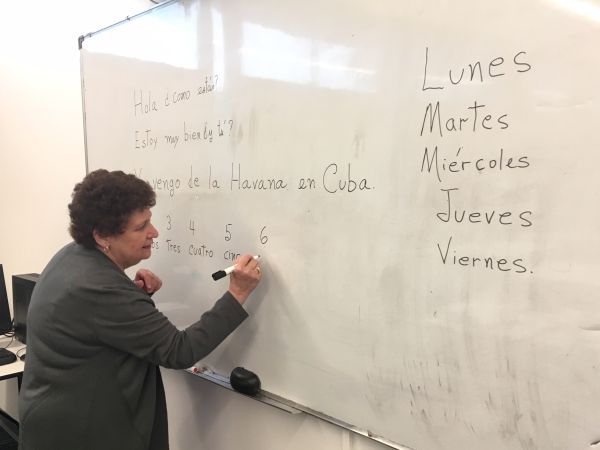 Hola ¿como estás?
Estoy muy bien ¿y tú?
vengo de la Havana en Cuba.
3 4 5 6
tres cuatro
Lunes
Martes
Miércoles
Jueves
Viernes.